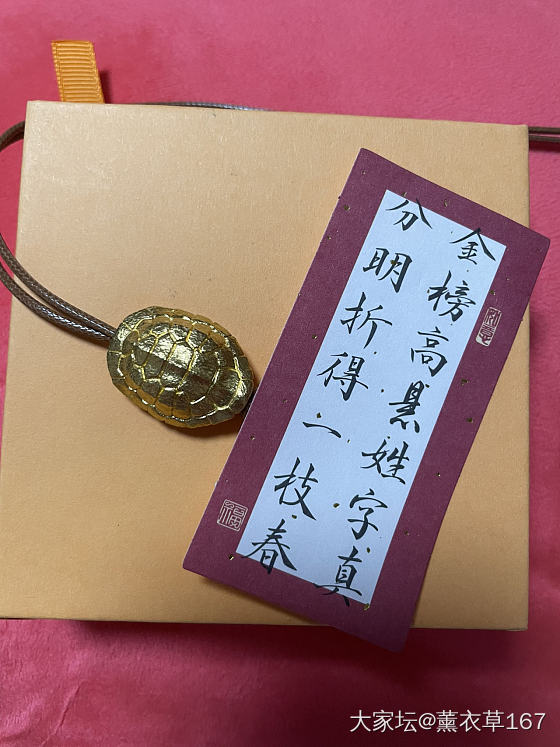 金榜高悬姓字真
分明折得一枝春
福
大家坛@薰衣草167